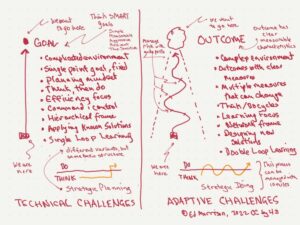 We want
to go here
Think SMART
goals
Simple
Measurable
GOAL
• Complicated environment
• Single point goal, fixed
• Planning mindset
• Think, then do
• Efficiency focus
• Command & control
• Hierarchical frame
• Applying Known Solutions
• Single Loop Learning
We are
here
different variants, but
same basic structure
DO
THINK
Strategic Planning
TECHNICAL CHALLENGES
We want
to go here
Outcome has
clear
measurable
characteristics
Manage
risk with
OUTCOME
• Complex environment
• Outcomes with clear
measures
• Multiple measures
that can change
• Think/Do cycles
• Learning Focus
• Network frame
• Designing new
solutions
• Double Loop Learning
We are
here
DO
THINK
This process
can be
managed with
Strategic Doing
ADAPTIVE CHALLENGES
© Ed Morrison, 2022